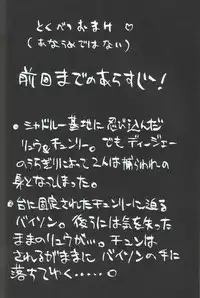 とくべつおまけ♡
(あなうめではない)
前回までのあらすじー!
●シャドルー基地に忍び込んだ
リュウ&チュンリー。でもディージェー
のうらぎりによって2人は捕らわれの
身となってしまった。
●台に固定されたチュンリーに迫る
バイソン。後ろには気を失った
ままのリュウが…。チュンは
されるがままにバイソンの手に
落ちてゆく……○